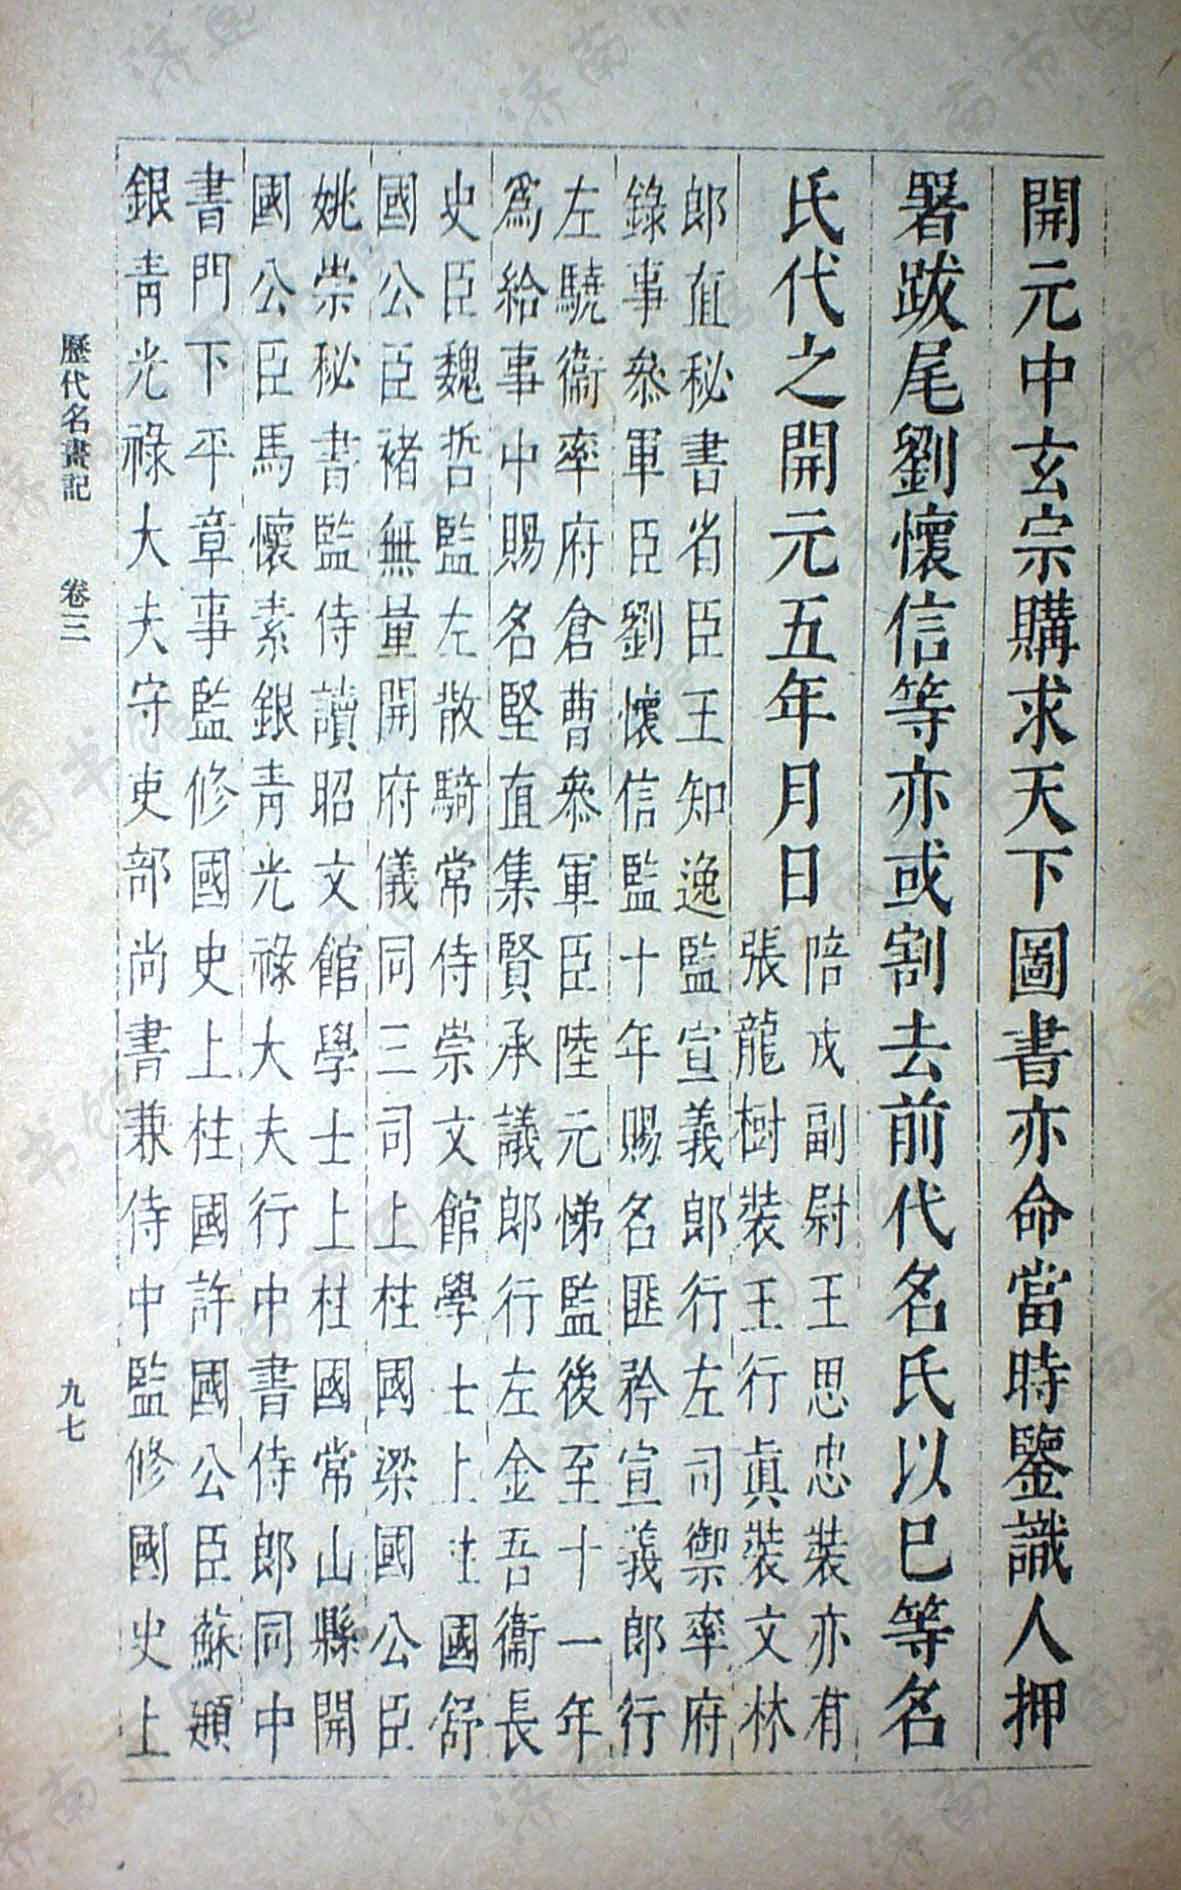 開元中玄宗購求天下圖書亦命當時鑒識人押
署跋尾劉懷信等亦或割去前代名氏以巳等名
氏代之開元五年月日
陪戎副尉王思忠裝亦有
張龍樹裝王行眞裝文林
郎直秘書省臣王知逸監宣義郎行左司禦率府
錄事叅軍臣劉懷信監十年賜名匪矜宣義郎行
左驍衞率府倉曹叅軍臣陸元悌監後至十一年
爲給事中賜名堅直集賢承議郎行左金吾衞長
史臣魏哲監左散騎常侍崇文館學士上柱國舒
國公臣褚無量開府儀同三司上柱國梁國公臣
姚崇秘書監侍讀昭文館學士上柱國常山縣開
國公臣馬懷素銀靑光祿大夫行中書侍郎同中
書門下平章事監修國史上柱國許國公臣蘇頲
銀靑光祿大夫守吏部尚書兼侍中監修國史上
歷代名畫記　卷三　九七
济南市图书馆